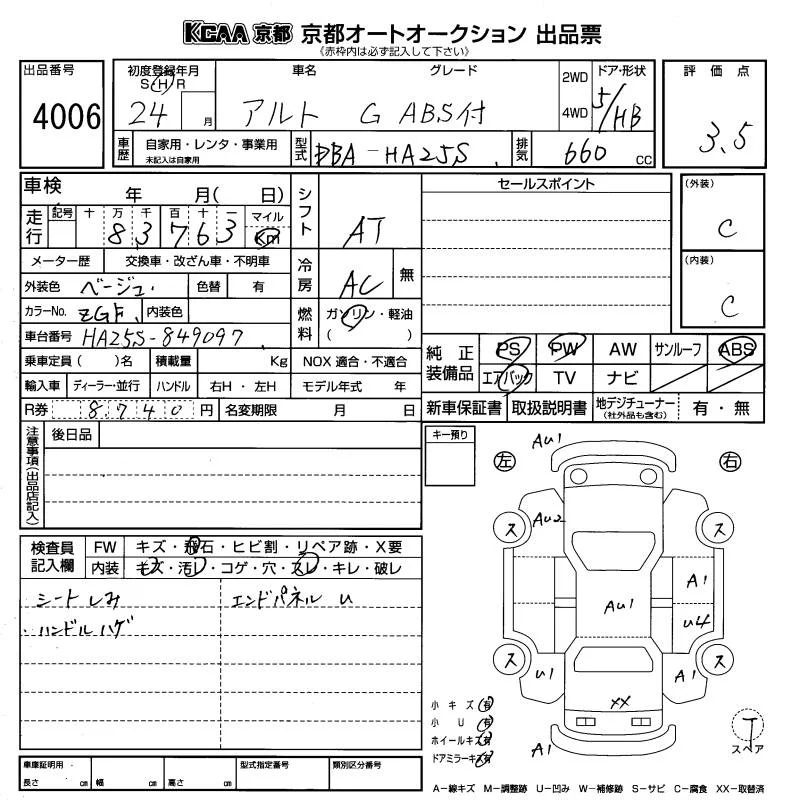 KCAA 京都 京都オートオークション 出品票
《赤枠内は必ず記入して下さい》
出品番号 4006
初度登録年月 S H R 24 月
車名 グレード アルト G ABS付
2WD 4WD
ドア・形状 5/HB
評価点 3.5
車歴 自家用・レンタ・事業用 未記入は自家用
型式 DBA-HA25S
排気 660 cc
車検 年 月( 日)
走行 記号 十 万 千 百 十 一 マイル km
8 3 7 6 3
メーター歴 交換車・改ざん車・不明車
外装色 ベージュ 色替 有
カラーNo. ZGF 内装色
車台番号 HA25S-849097
乗車定員( )名 積載量 Kg
輸入車 ディーラー・並行 ハンドル 右H・左H
R券 8740 円 名変期限 月 日
シフト AT
冷房 AC 無
燃料 ガソリン・軽油 ( )
NOX 適合・不適合
モデル年式 年
セールスポイント
(外装) C
(内装) C
純正装備品 PS PW AW サンルーフ ABS
エアバック TV ナビ
新車保証書 取扱説明書 地デジチューナー (社外品も含む) 有・無
注意事項(出品店記入) 後日品
キー預り
検査員記入欄 FW キズ・飛石・ヒビ割・リペア跡・X要
内装 キズ・汚レ・コゲ・穴・スレ・キレ・破レ
シートしみ エンドパネル U
ハンドルハゲ
左 右
AU1
ス ス
AU2
A1
AU1
U4
ス ス
U1 A1
XX
A1
小キズ 有
小U 有
ホイールキズ 有
ドアミラーキズ 有
T
スペア
車庫証明用 長さ cm 幅 cm 高さ cm 型式指定番号 類別区分番号
A-線キズ M-調整跡 U-凹み W-補修跡 S-サビ C-腐食 XX-取替済